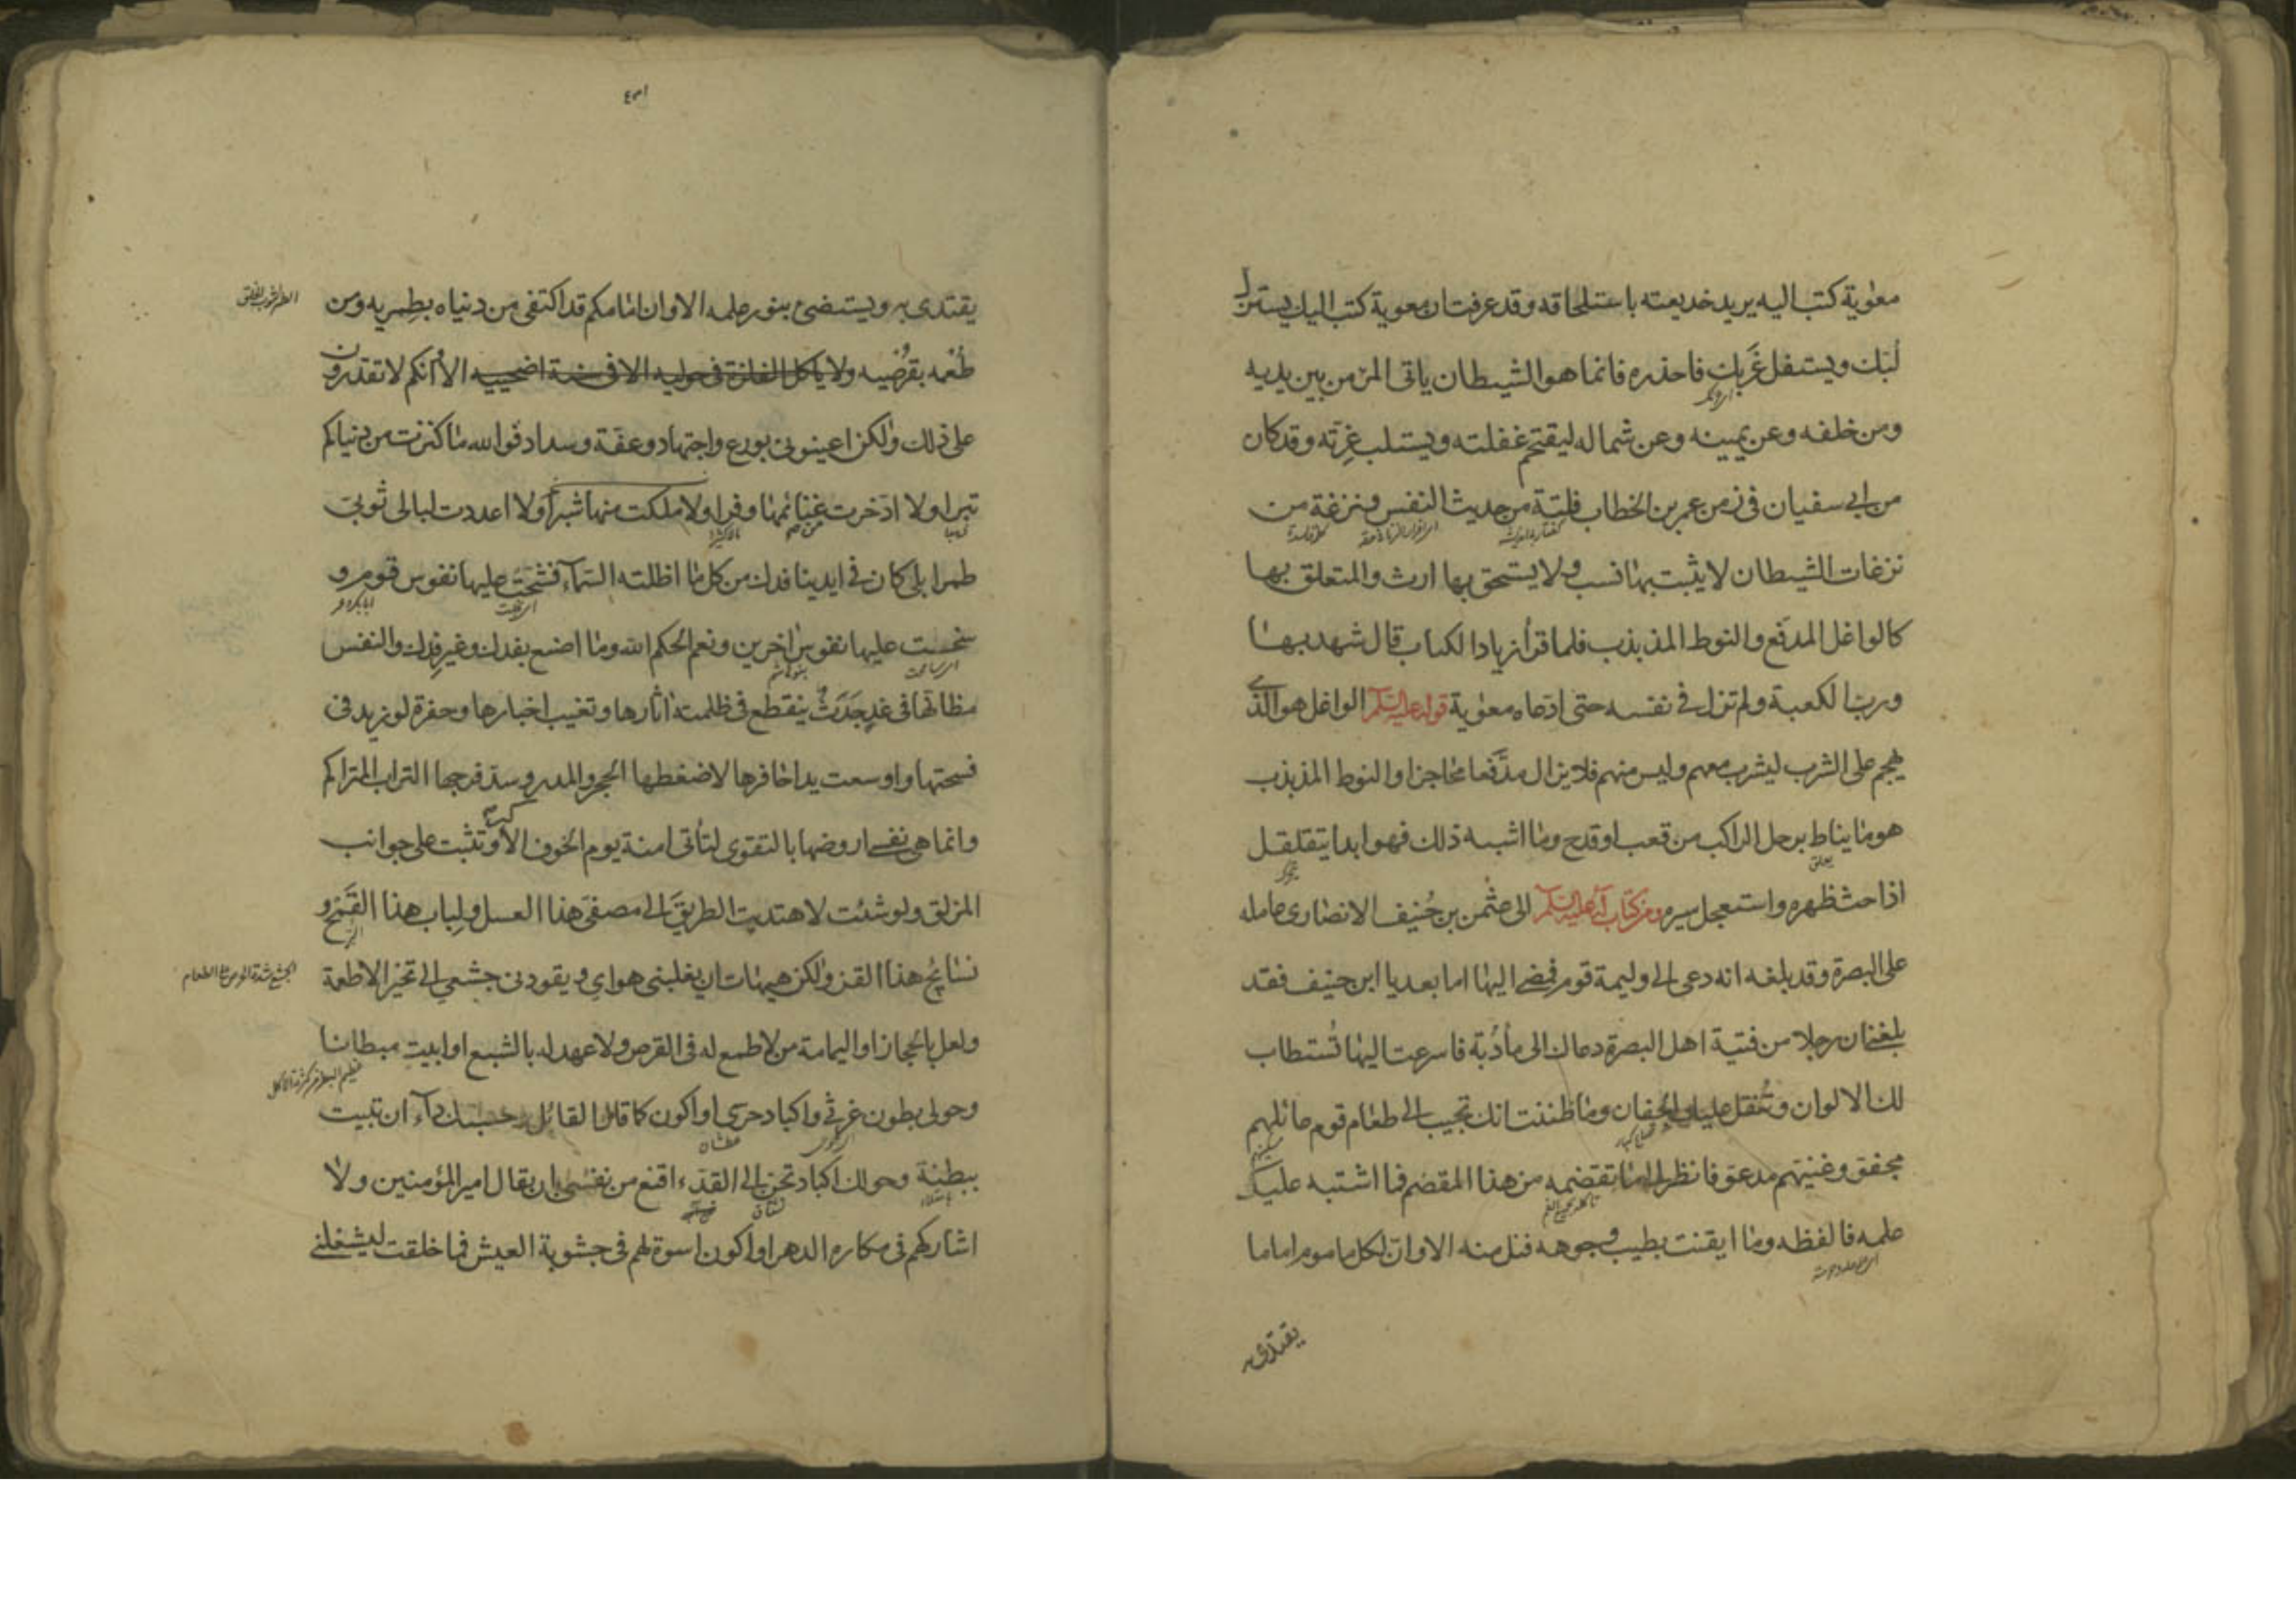 معوية كتب اليه يريد خديعته باستلحاقه وقد عرفت ان معوية كتب اليك يستزل
لبّك ويستفل غَربك فاحذره فانما هو الشيطان ياتى المرء من بين يديه
ومن خلفه وعن يمينه وعن شماله ليقتحم غفلته ويستلب غِرّته وقد كان
من ابى سفيان فى زمن عمر بن الخطاب فلتة من حديث النفس ونزغة من
نزغات الشيطان لا يثبت بها نسب ولا يستحق بها ارث والمتعلق بها
كالواغل المدفّع والنوط المذبذب فلما قرأ زياد الكتاب قال شهد بها
ورب الكعبة ولم تزل فى نفسه حتى ادّعاه معوية قوله عليه السلم الواغل هو الذى
يهجم على الشرب ليشرب معهم وليس منهم فلا يزال مدفّعا محاجزا والنوط المذبذب
هو ما يناط برحل الراكب من قعب او قدح وما اشبه ذلك فهو ابدا يتقلقل
يعلق
اذا حث ظهره واستعجل سيره ومن كتاب له عليه السلم الى عثمن بن حُنيف الانصارى عامله
على البصرة وقد بلغه انه دعى الى وليمة قوم فمضى اليها اما بعد يا ابن حنيف فقد
بلغنى ان رجلا من فتية اهل البصرة دعاك الى مأدُبة فاسرعت اليها تُستطاب
لك الالوان وتُنقل عليك الجفان وما ظننت انك تجيب الى طعام قوم عائلهم
مجفو وغنيهم مدعو فانظر الى ما تقضمه من هذا المقضم فما اشتبه عليك
علمه فالفظه وما ايقنت بطيب وجوهه فنل منه الا وان لكل ماموم اماما
يقتدى به
يقتدى به ويستضئ بنور علمه الا وان امامكم قد اكتفى من دنياه بطِمريه ومن
طُعْمه بقُرصَيه ولا ياكل الفلذة فى حوليه الا فى سنة اضحييه الا وانكم لا تقدرون
على ذلك ولكن اعينونى بورع واجتهاد وعفة وسداد فوالله ما كنزت من دنياكم
تبرا ولا ادّخرت من غنائمها وفرا ولا ملكت منها شبرا ولا اعددت لبالى ثوبى
طمرا بلى كان فى ايدينا فدك من كل ما اظلته السماء فشحّت عليها نفوس قوم و
سخت عليها نفوس اخرين ونعم الحكم الله وما اصنع بفدك وغير فدك والنفس
مظانها فى غدٍ جَدَثٌ ينقطع فى ظلمته اثارها وتغيب اخبارها وحفرة لو زيد فى
فسحتها واوسعت يدا حافرها لاضغطها الحجر والمدر وسد فرجها التراب المتراكم
وانما هى نفسى اروضها بالتقوى لتأتى امنة يوم الخوف الاكبر وتثبت على جوانب
المزلق ولو شئت لاهتديت الطريق الى مصفى هذا العسل ولباب هذا القمح و
نسايج هذا القز ولكن هيهات ان يغلبنى هواى ويقودنى جشعى الى تخيّر الاطعمة
ولعل بالحجاز او اليمامة من لا طمع له فى القرص ولا عهد له بالشبع او ابيت مبطانا
وحولى بطون غرثى واكباد حرى او اكون كما قال القائل وحسبك داء ان تبيت
ببطنة وحولك اكباد تحن الى القد ء اقنع من نفسى بان يقال امير المؤمنين ولا
اشاركهم فى مكاره الدهر او اكون اسوة لهم فى جشوبة العيش فما خلقت ليشغلنى